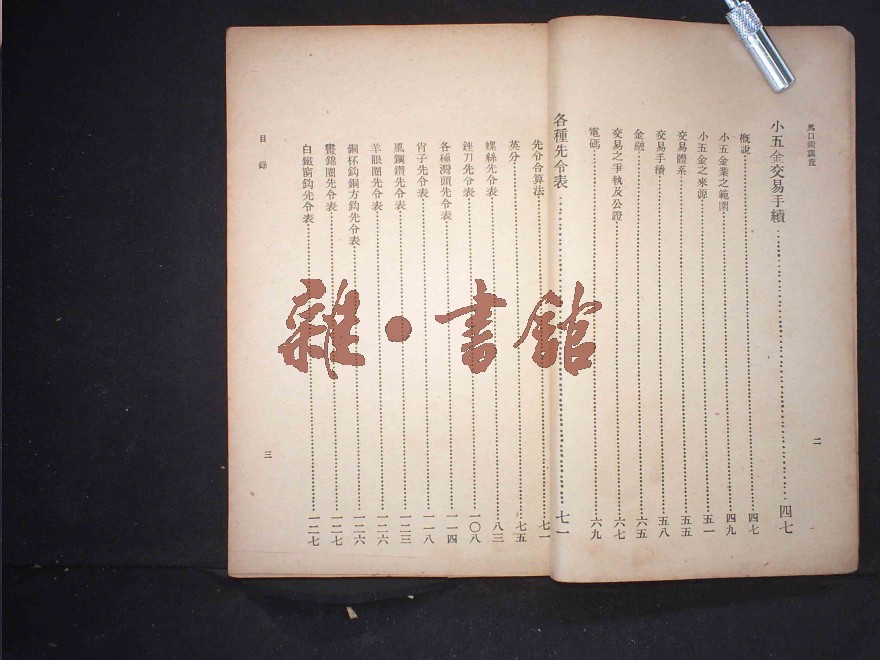 小五金交易手續 四七
概說 四七
小五金業之範圍 四九
小五金之來源 五一
交易體系 五五
交易手續 五八
金融 六五
交易之爭執及公證 六七
電碼 六九
二
各種先令表 七一
先令合算法 七一
英分 七五
螺絲先令表 八三
銼刀先令表 一〇八
各種灣頭先令表 一一四
肖子先令表 一一八
風鋼鑽先令表 一二三
羊眼圈先令表 一二六
銅杯鈎銅方鈎先令表 一二六
畫鏡圈先令表 一二七
白鐵窗鈎先令表 一二七
目錄
三
雜·書館